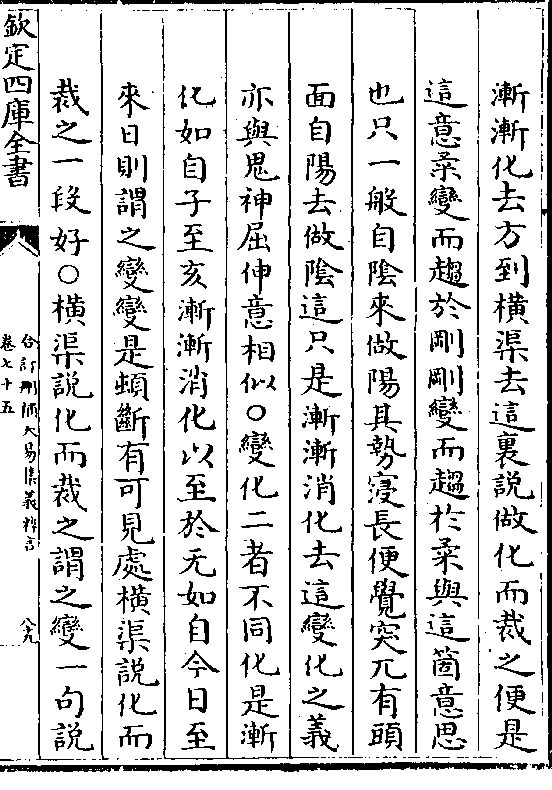 漸漸化去方到橫渠去這裏説做化而裁之便是
這意柔變而趨於剛剛變而趨於柔與這箇意思
也只一般自陰來做陽其勢寖長便覺突兀有頭
面自陽去做陰這只是漸漸消化去這變化之義
亦與鬼神屈伸意相似○變化二者不同化是漸
化如自子至亥漸漸消化以至於无如自今日至
來日則謂之變變是頓斷有可見處橫渠説化而
裁之一段好○橫渠説化而裁之謂之變一句説
欽定四庫全書
合訂刪補大易集義粹言
卷七十五